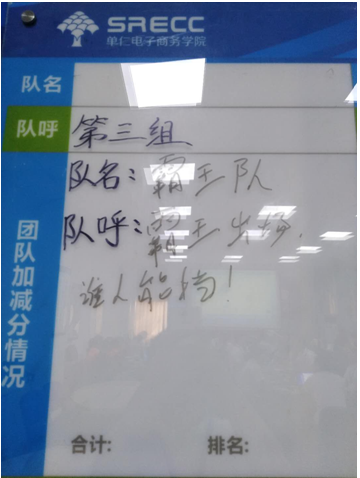 SRECC
单仁电子商务学院
队名
队呼
第三组
队名：霸王队
队呼：霸王出场，
谁人能挡！
团队加减分情况
合计:
排名: